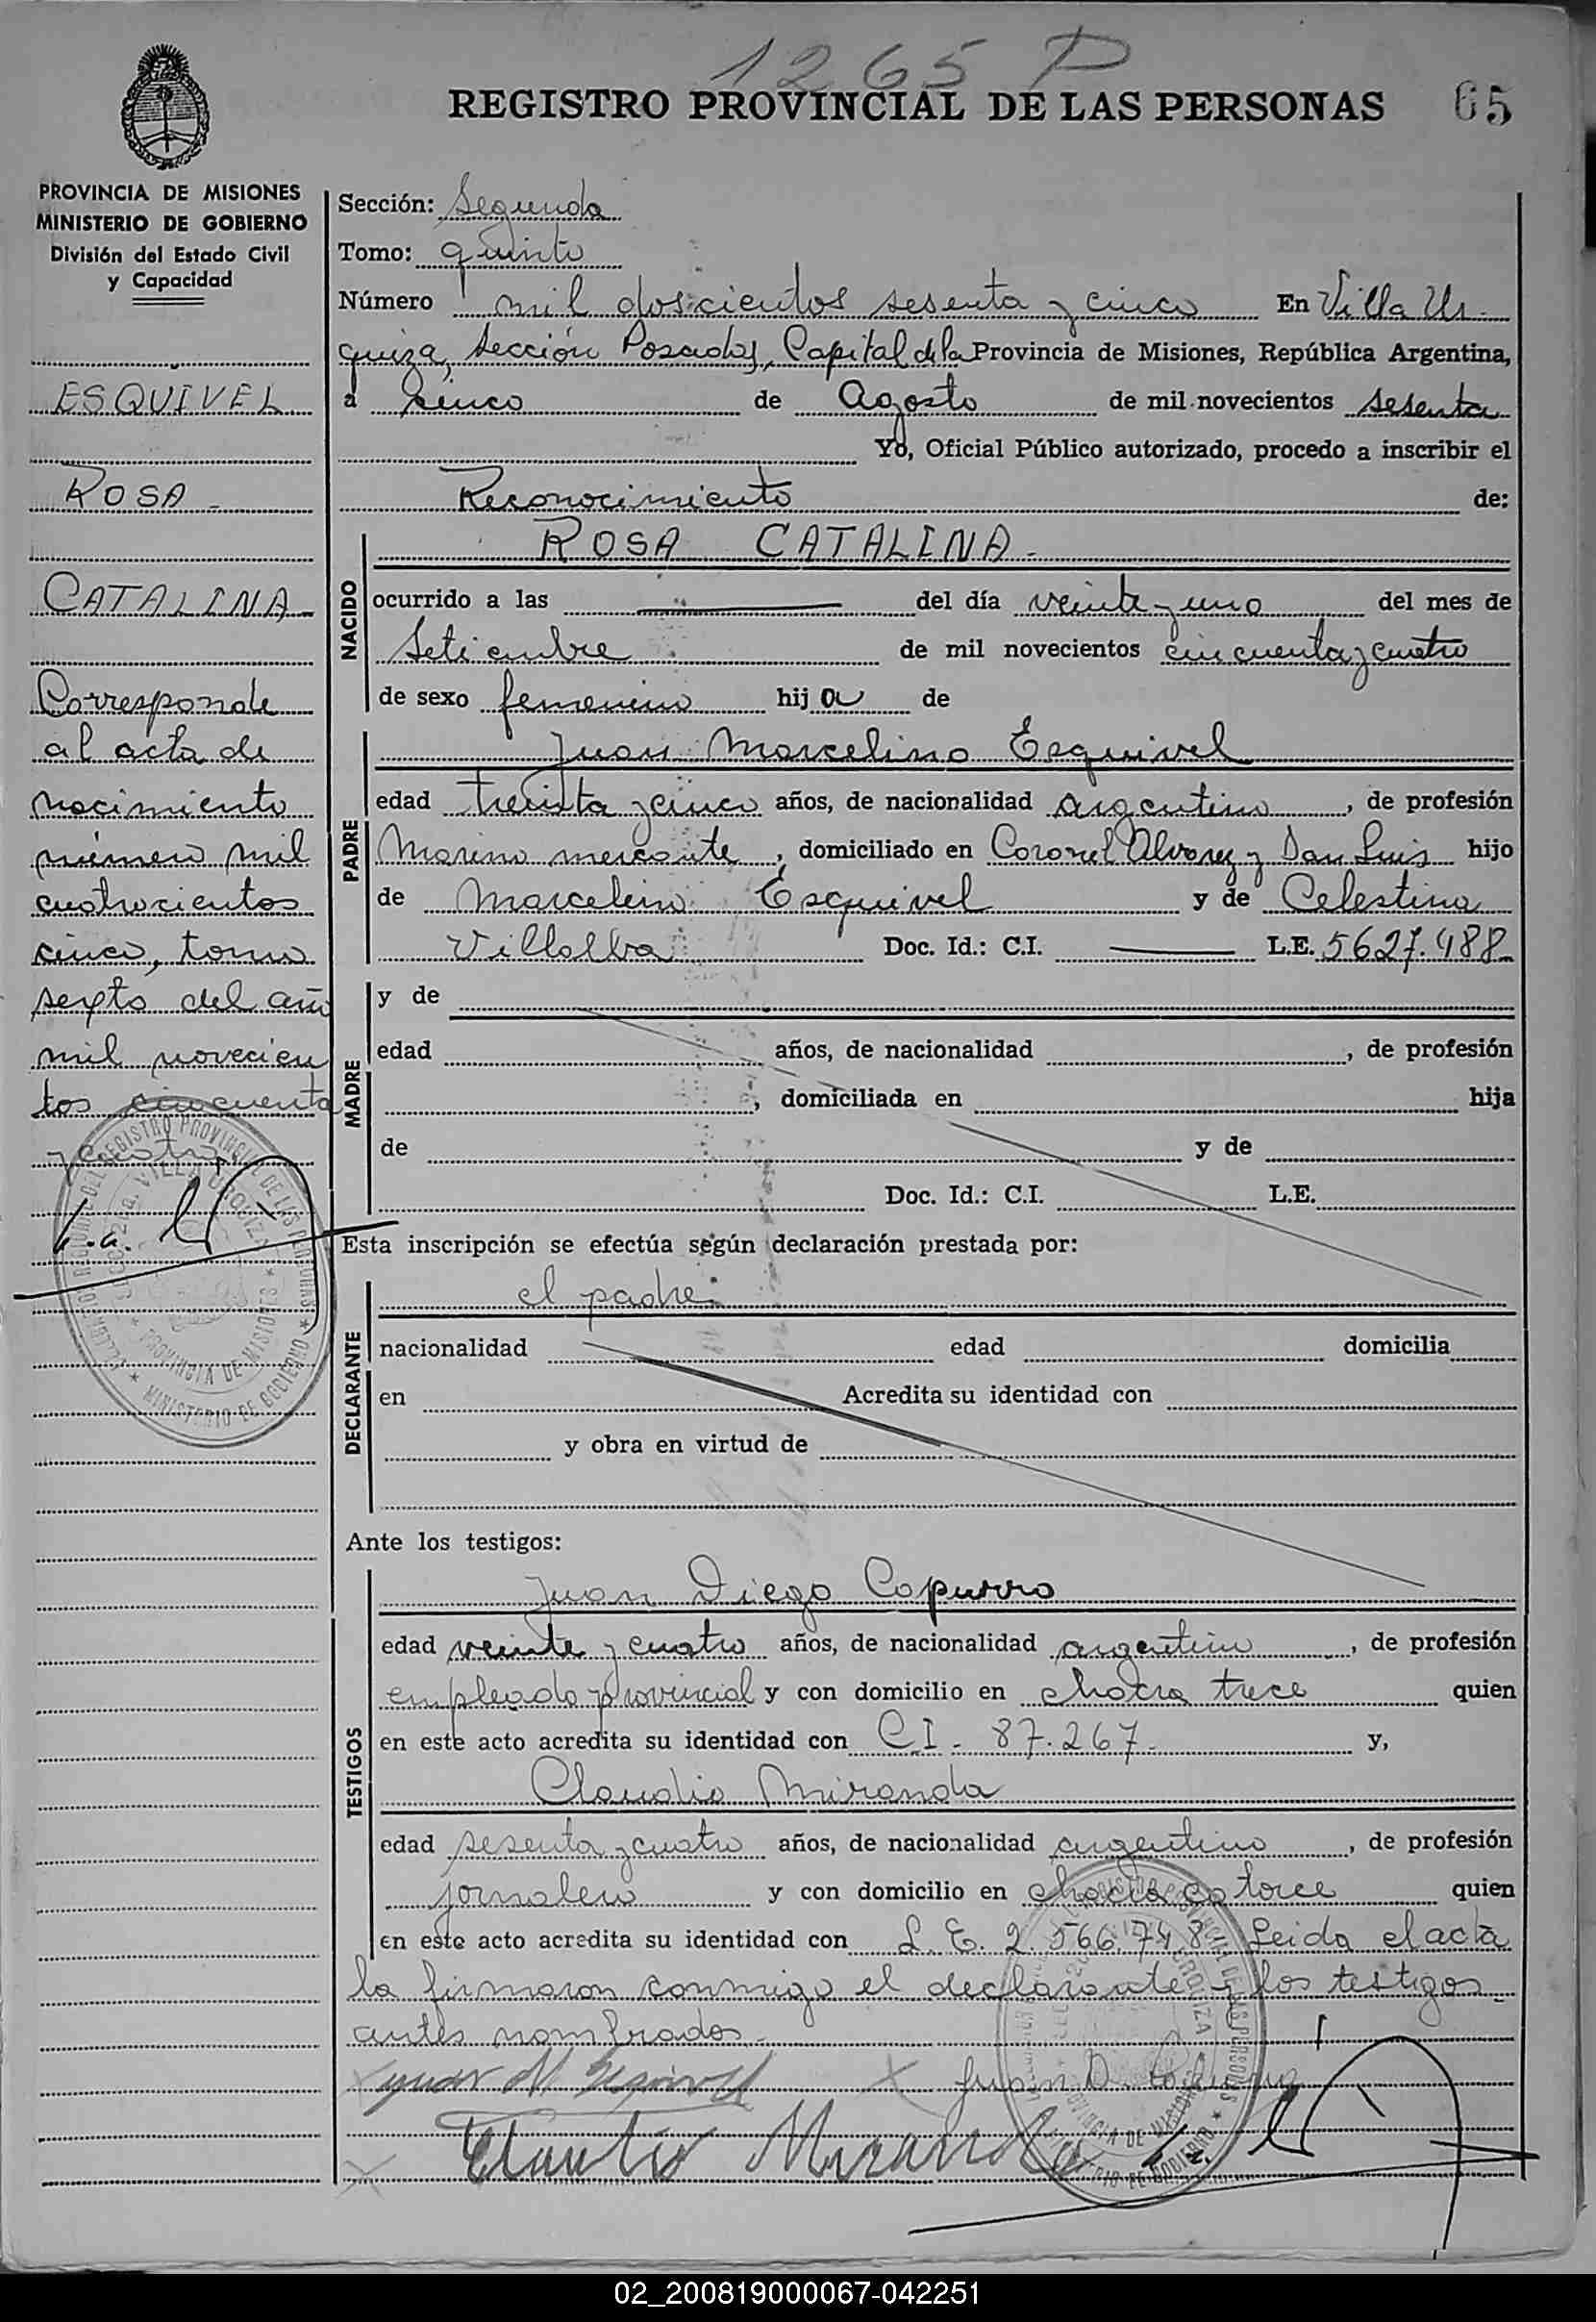 1265 P
REGISTRO PROVINCIAL DE LAS PERSONAS 65
PROVINCIA DE MISIONES
MINISTERIO DE GOBIERNO
División del Estado Civil
y Capacidad
ESQUIVEL
ROSA
CATALINA
Corresponde
al acta de
nacimiento
número mil
cuatrocientos
cinco, tomo
sexto del año
mil novecien
tos cincuenta
y cuatro
Sección: Segunda
Tomo: quinto
Número mil doscientos sesenta y cinco En Villa Ur-
quiza, Sección Posadas, Capital de la Provincia de Misiones, República Argentina,
a cinco de Agosto de mil novecientos sesenta
Yo, Oficial Público autorizado, procedo a inscribir el
Reconocimiento de:
NACIDO
ROSA CATALINA.
ocurrido a las del día veinte y uno del mes de
Setiembre de mil novecientos cincuenta y cuatro
de sexo femenino hija de
PADRE
Juan Marcelino Esquivel
edad treinta y cinco años, de nacionalidad argentino, de profesión
Marino mercante, domiciliado en Coronel Alvarez y San Luis hijo
de Marcelino Esquivel y de Celestina
Villalba Doc. Id.: C.I. L.E. 5627.488
MADRE
y de
edad años, de nacionalidad , de profesión
, domiciliada en hija
de y de
Doc. Id.: C.I. L.E.
Esta inscripción se efectúa según declaración prestada por:
DECLARANTE
el padre
nacionalidad edad domicilia
en Acredita su identidad con
y obra en virtud de
Ante los testigos:
TESTIGOS
Juan Diego Capurro
edad veinte y cuatro años, de nacionalidad argentino, de profesión
empleado provincial y con domicilio en chacra trece quien
en este acto acredita su identidad con C.I. 87.267. y,
Claudio Miranda
edad sesenta y cuatro años, de nacionalidad argentino, de profesión
jornalero y con domicilio en chacra catorce quien
en este acto acredita su identidad con L.E. 2.566.748 Leida el acta
la firmaron conmigo el declarante y los testigos
antes nombrados.
Juan M Esquivel Juan D.
Claudio Miranda
REGISTRO PROVINCIAL DE LAS PERSONAS
VILLA URQUIZA
PROVINCIA DE MISIONES
MINISTERIO DE GOBIERNO
02_200819000067-042251